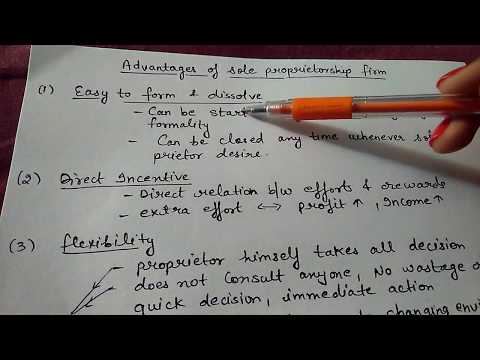 Advantages of sole proprietorship firm
(1) Easy to form & dissolve
- Can be start
formality
- Can be closed any time whenever
prietor desire.
(2) Direct Incentive
- Direct relation b/w effort & rewards
- extra effort ↔ profit ↑, Income ↑
(3) flexibility
proprietor himself takes all decision
does not consult anyone, No wastage
quick decision, immediate action
changing